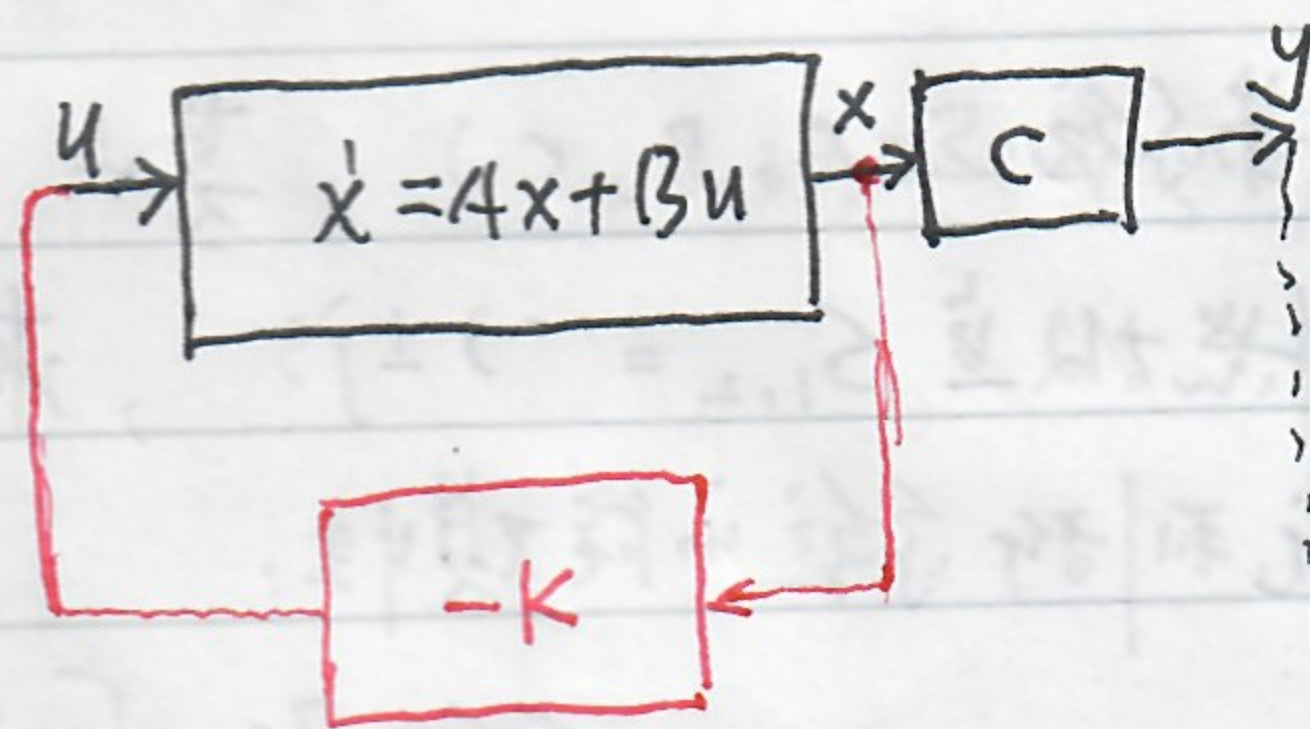 u
ẋ = Ax + Bu
x
C
y
-K